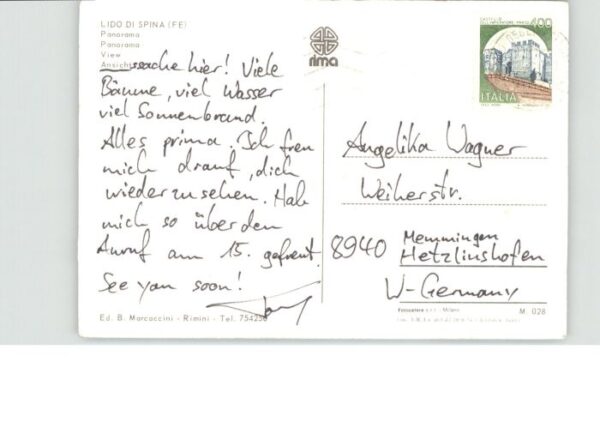 LIDO DI SPINA (FE)
Panorama
Panorama
View
Ansichtssache hier! Viele
Bäume, viel Wasser
viel Sonnenbrand.
Alles prima. Ich freu
mich drauf, dich
wiederzusehen. Hab
mich so über den
Anruf am 15. gefreut.
See you soon!
Ed. B. Marcaccini - Rimini - Tel. 754256
rima
400
ITALIA
Angelika Wagner
Weiherstr.
8940 Memmingen
Hetzlinshofen
W-Germany
M. 028